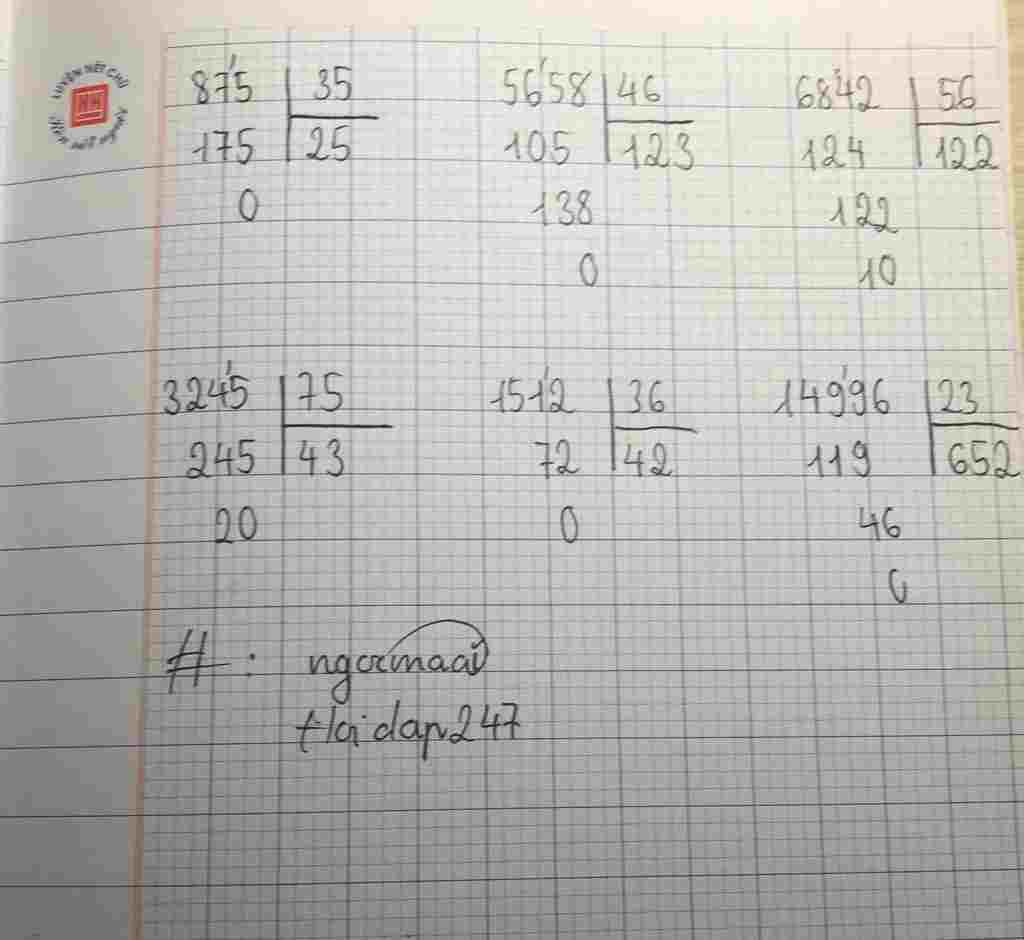 LUYỆN NÉT CHỮ
875 35 5658 46 6842 56
175 25 105 123 124 122
0 138 122
0 10
3245 75 1512 36 14996 23
245 43 72 42 119 652
20 0 46
0
# : ngocmaai